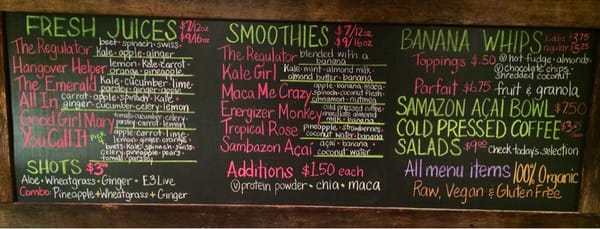 FRESH JUICES $7/12oz
$9/16oz
The Regulator beet·spinach·swiss·
kale·apple·ginger
Hangover Helper lemon·kale·carrot·
orange·pineapple
The Emerald kale·cucumber·lime·
parsley·ginger·apple
All In carrot·apple·spinach·kale·
ginger·cucumber·celery·lemon
Good Girl Mary tomato·cucumber·celery
parsley·carrot·lemon
You Call It apple·carrot·lime
lemon·ginger·orange·
beets·kale·spinach·swiss·
celery·pineapple·pears·
tomato·parsley
SHOTS $3
Aloe·Wheatgrass·Ginger·E3Live
Combo: Pineapple+Wheatgrass+Ginger
SMOOTHIES $7/12oz
$9/16oz
The Regulator blended with a
banana
Kale Girl kale·mint·almond milk·
almond butter·banana
Maca Me Crazy apple·banana·maca·
spinach·coconut flesh·
cinnamon·nutmeg
Energizer Monkey cold pressed coffee·
almond butter·almond
milk·banana
Tropical Rose pineapple·strawberries·
coconut water·banana
Sambazon Açai açai·banana·
coconut water
Additions $1.50 each
protein powder·chia·maca
BANANA WHIPS kiddie $3.75
regular $5.25
Toppings $.50 hot fudge·almonds·
chocolate chips·
shredded coconut
Parfait $6.75 fruit & granola
SAMAZON AÇAI BOWL $7.50
COLD PRESSED COFFEE $3
SALADS $9.00 check today's selection
All menu items 100% Organic
Raw, Vegan & Gluten Free